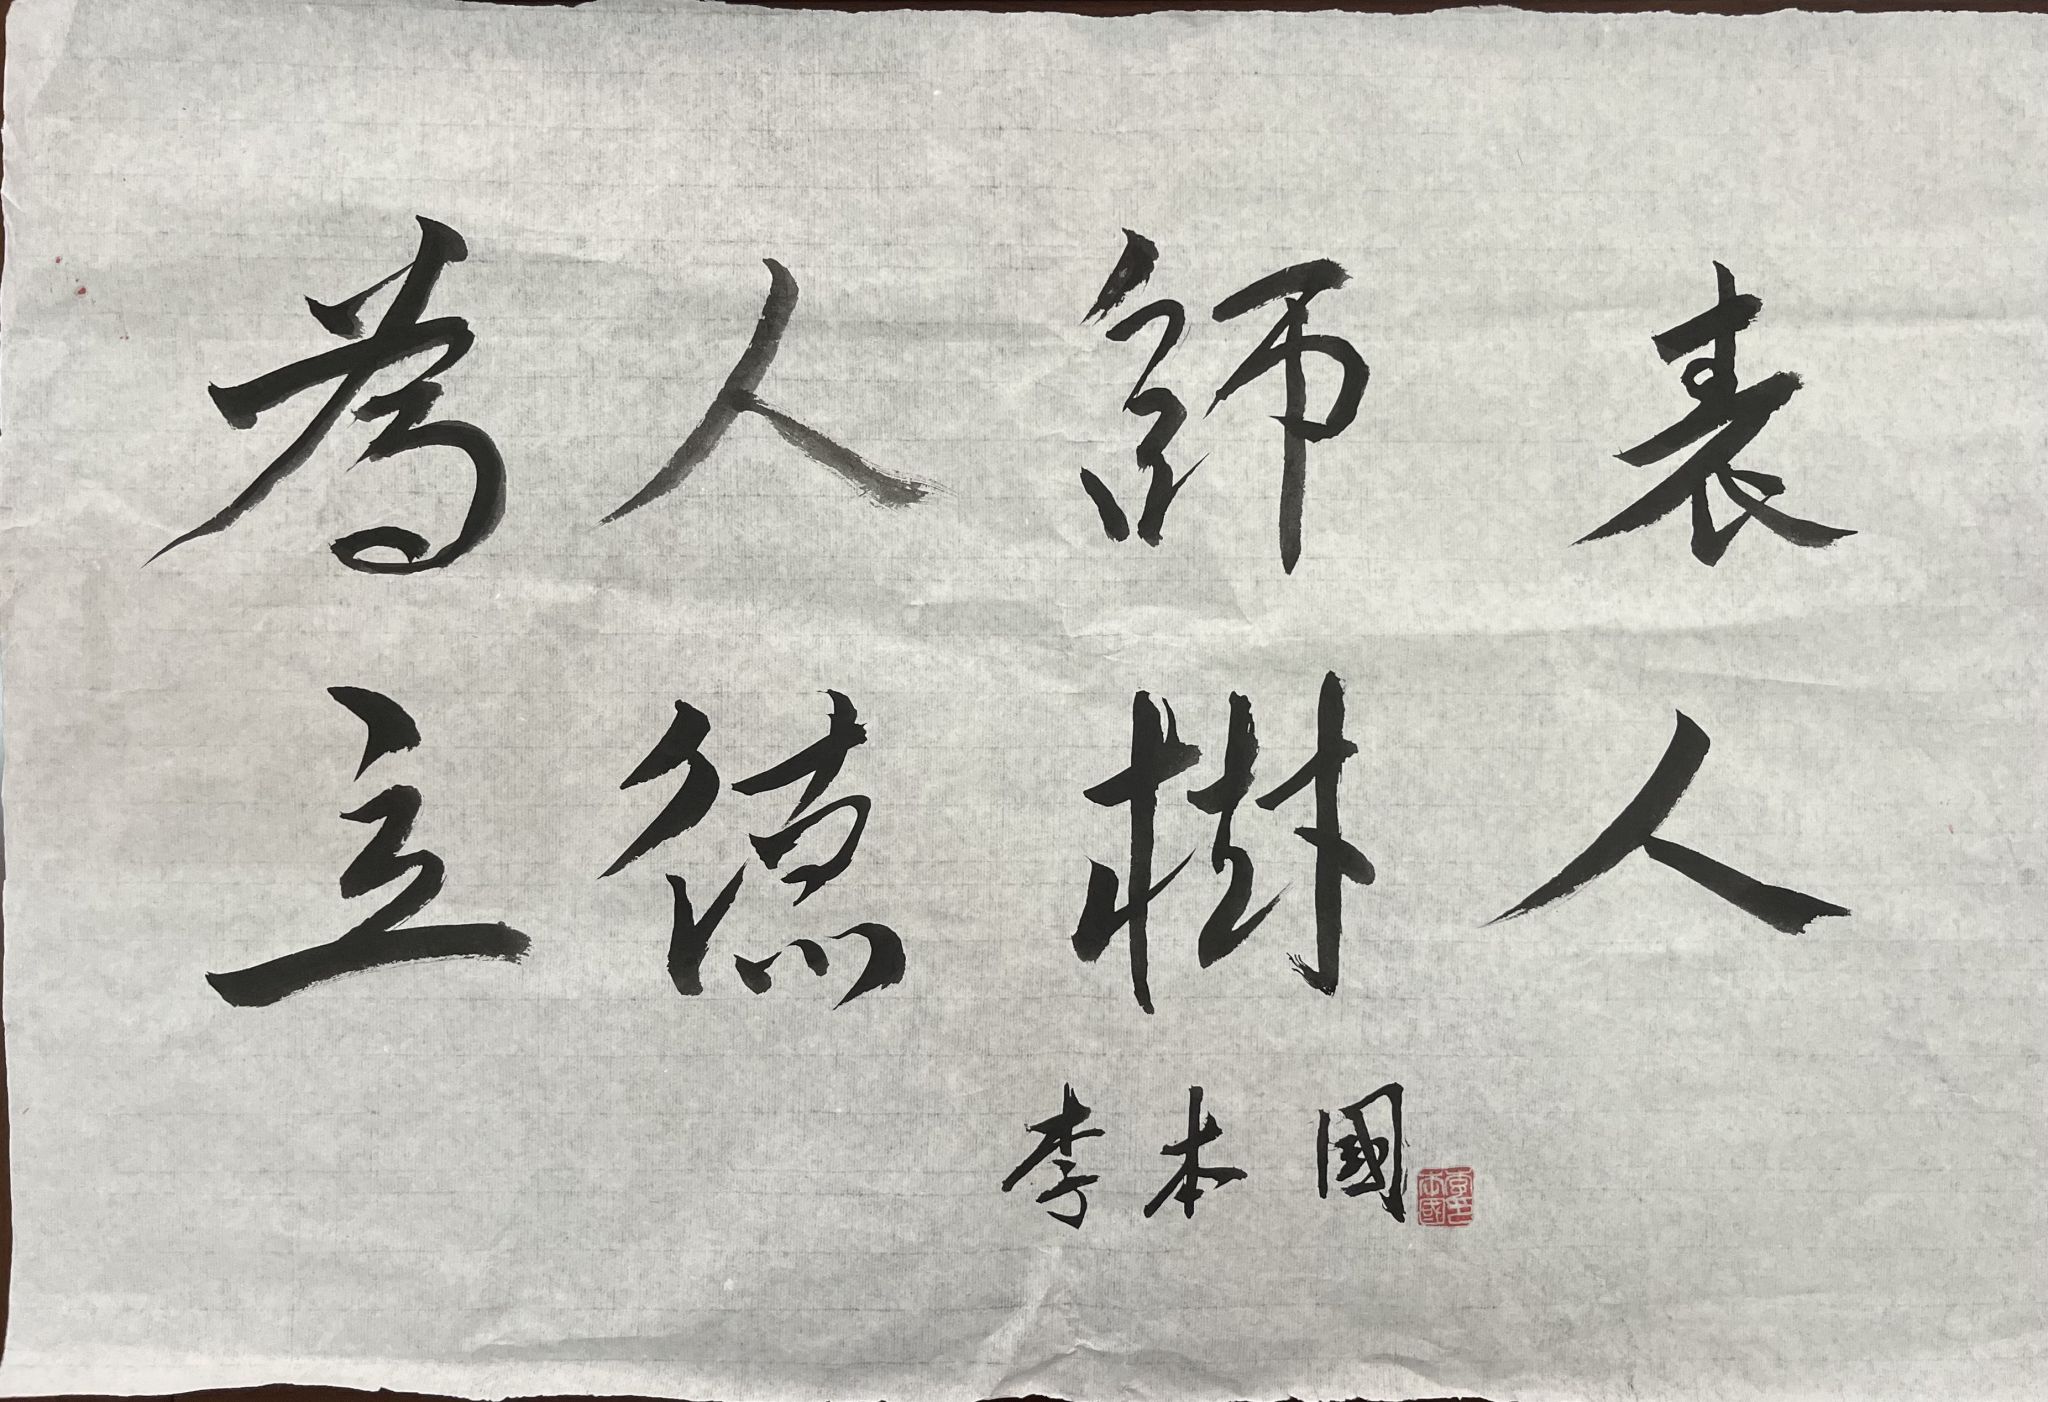 為人師表
立德樹人
李本國